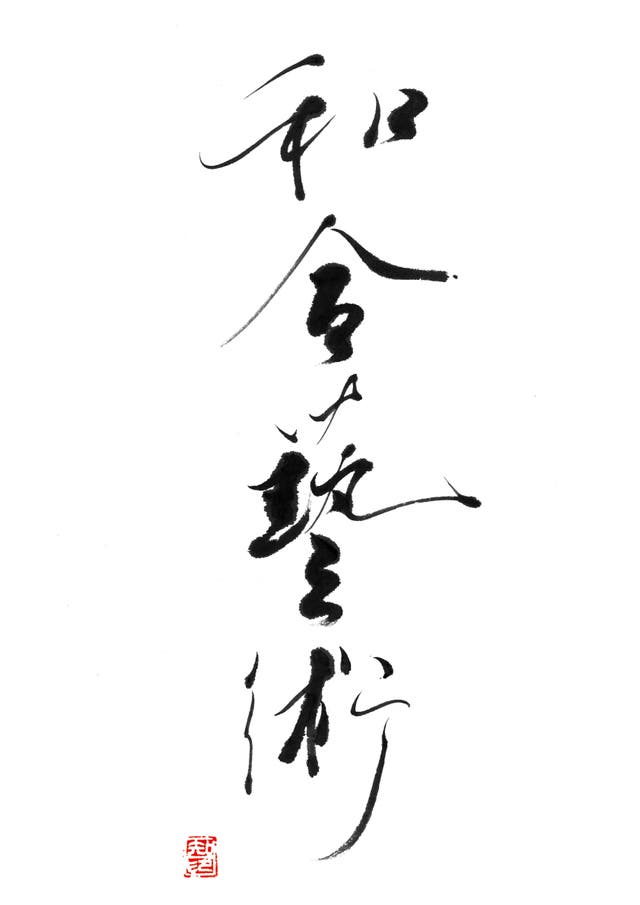 和合藝術